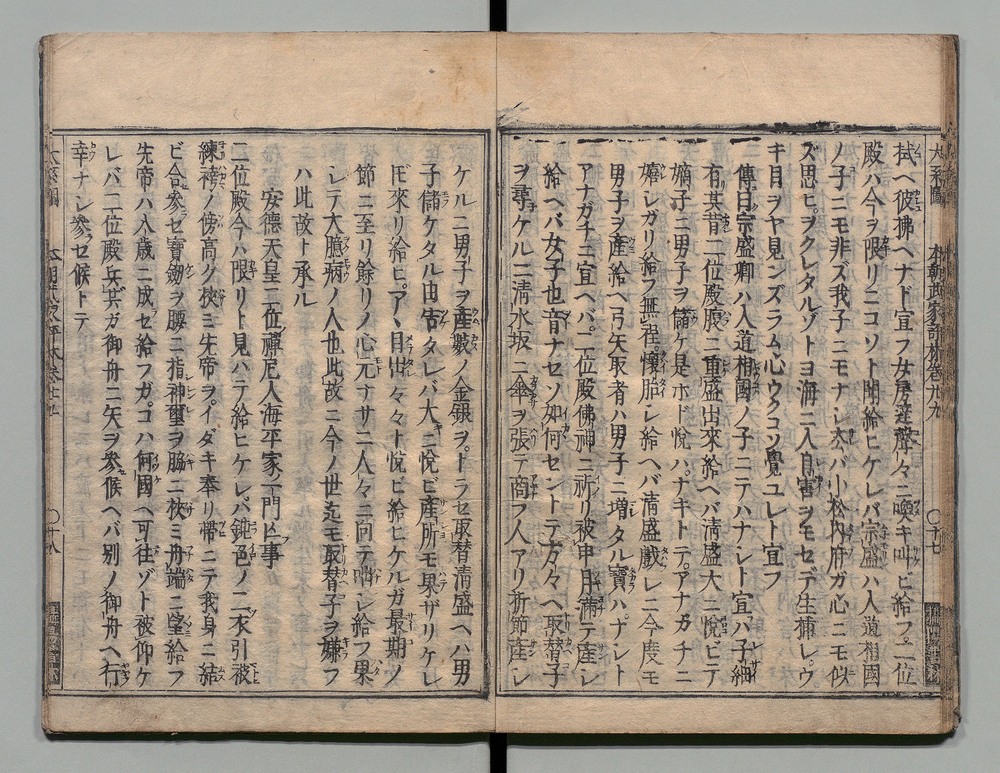 拭ヘ彼佛ヘナド宣フ女房達聲々ニ喚キ叫ビ給フ二位
殿ハ今ヲ限リニコソト聞給ヒケレバ宗盛ハ入道相國
ノ子ニモ非ズ我子ニモナシ去バ小松内府ガ心ニモ似
ズ思ヒヲクレタルゾトヨ海ニ入自害ヲモセデ生捕レウ
キ目ヲヤ見ンズラム心ウクコソ覺ユレト宣フ
一傳曰宗盛卿ハ入道相國ノ子ニテハナシト宣ハ子細
有其昔二位殿腹ニ重盛出來給ヘバ清盛大ニ悅ビテ
嫡子ニ男子ヲ儲ケ是ホド悅ハナキトテアナガチニ
嬉シガリ給フ無程懷胎シ給ヘバ清盛戲レニ今度モ
男子ヲ產給ヘ弓矢取者ハ男子ニ增タル寶ハナシト
アナガチニ宣ヘバ二位殿佛神ニ祈リ被申月滿テ產シ
給ヘバ女子也音ナセソ如何セントテ方々ヘ取替子
ヲ尋ケルニ清水坂ニ傘ヲ張テ商フ人アリ折節產シ
ケルニ男子ヲ產數ノ金銀ヲトラセ取替清盛ヘハ男
子儲ケタル由告タレバ大ニ悅ビ產所モ果ザリケレ
ドモ來リ給ヒアヽ目出々々ト悅ビ給ヒケルガ最期ノ
節ニ至リ餘リノ心元ナサニ人々ニ向テ咄シ給フ果
シテ大臆病ノ人也此故ニ今ノ世迄モ取替子ヲ嫌フ
ハ此故ト承ル
安德天皇二位禪尼入海平家一門亡事
二位殿今ハ限リト見ハテ給ヒケレバ鈍色ノ二衣引被
練袴ノ傍高ク挾ミ先帝ヲイダキ奉リ帶ニテ我身ニ結
ビ合參セ寶劔ヲ腰ニ指神璽ヲ脇ニ挾ミ舟端ニ望給フ
先帝ハ八歲ニ成セ給フガコハ何國ヘ可往ゾト被仰ケ
レバ二位殿兵共ガ御舟ニ矢ヲ參候ヘバ別ノ御舟ヘ行
幸ナシ參セ候トテ